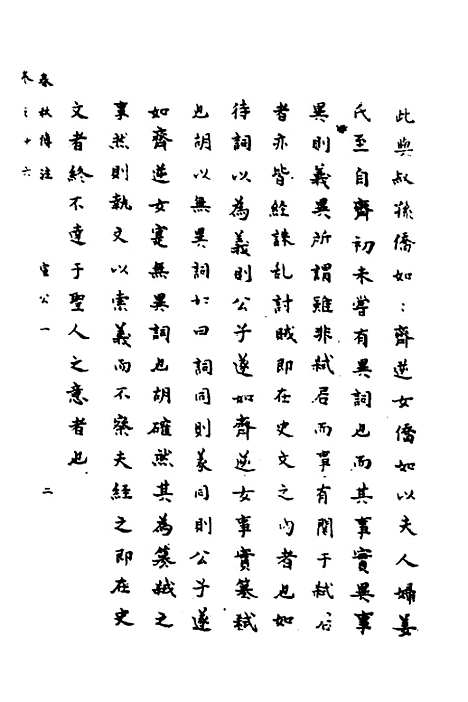 此與叔孫僑如：齊逆女僑如以夫人婦姜
氏至自齊初未嘗有異詞也而其事實異事
異則義異所謂雖非弒君而事有関于弒君
者亦皆經誅乱討賊即在史文之內者也如
待詞以為義則公子遂如齊逆女事實篡弒
也胡以無異詞如曰詞同則義同則公子遂
如齊逆女寔無異詞也胡確然其為篡弒之
事然則執文以索義而不察夫經之即在史
文者終不達于聖人之意者也
春秋傳注 宣公一 二
卷之十六